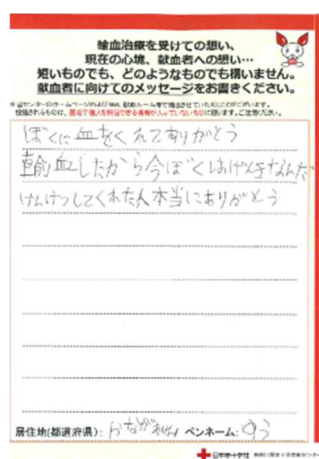 輸血治療を受けての想い、
現在の心境、献血者への想い…
短いものでも、どのようなものでも構いません。
献血者に向けてのメッセージをお書きください。
ぼくに血をくれてありがとう
輸血したから今ぼくはげんきなんだ
けんけつしてくれた人本当にありがとう
居住地(都道府県): かながわけん ペンネーム: ゆう
日本赤十字社